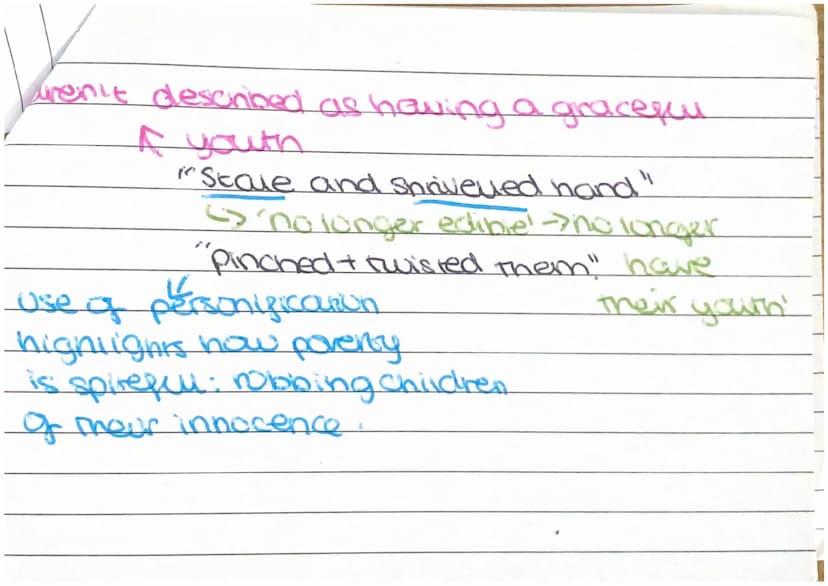 arent described as having a graceful
↑ youth
"stale and shrivelled hand"
↳ 'no longer edible' → no longer
"pinched + twisted them". have
use of personification their youth'
highlights how poverty
is spiteful: robbing children
of their innocence.